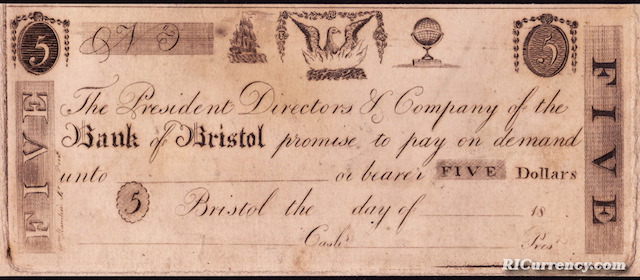 5 No 5
The President Directors & Company of the
Bank of Bristol promise to pay on demand
unto or bearer FIVE Dollars
5 Bristol the day of 18
Cash.r Pres.t
FIVE
FIVE
RICurrency.com